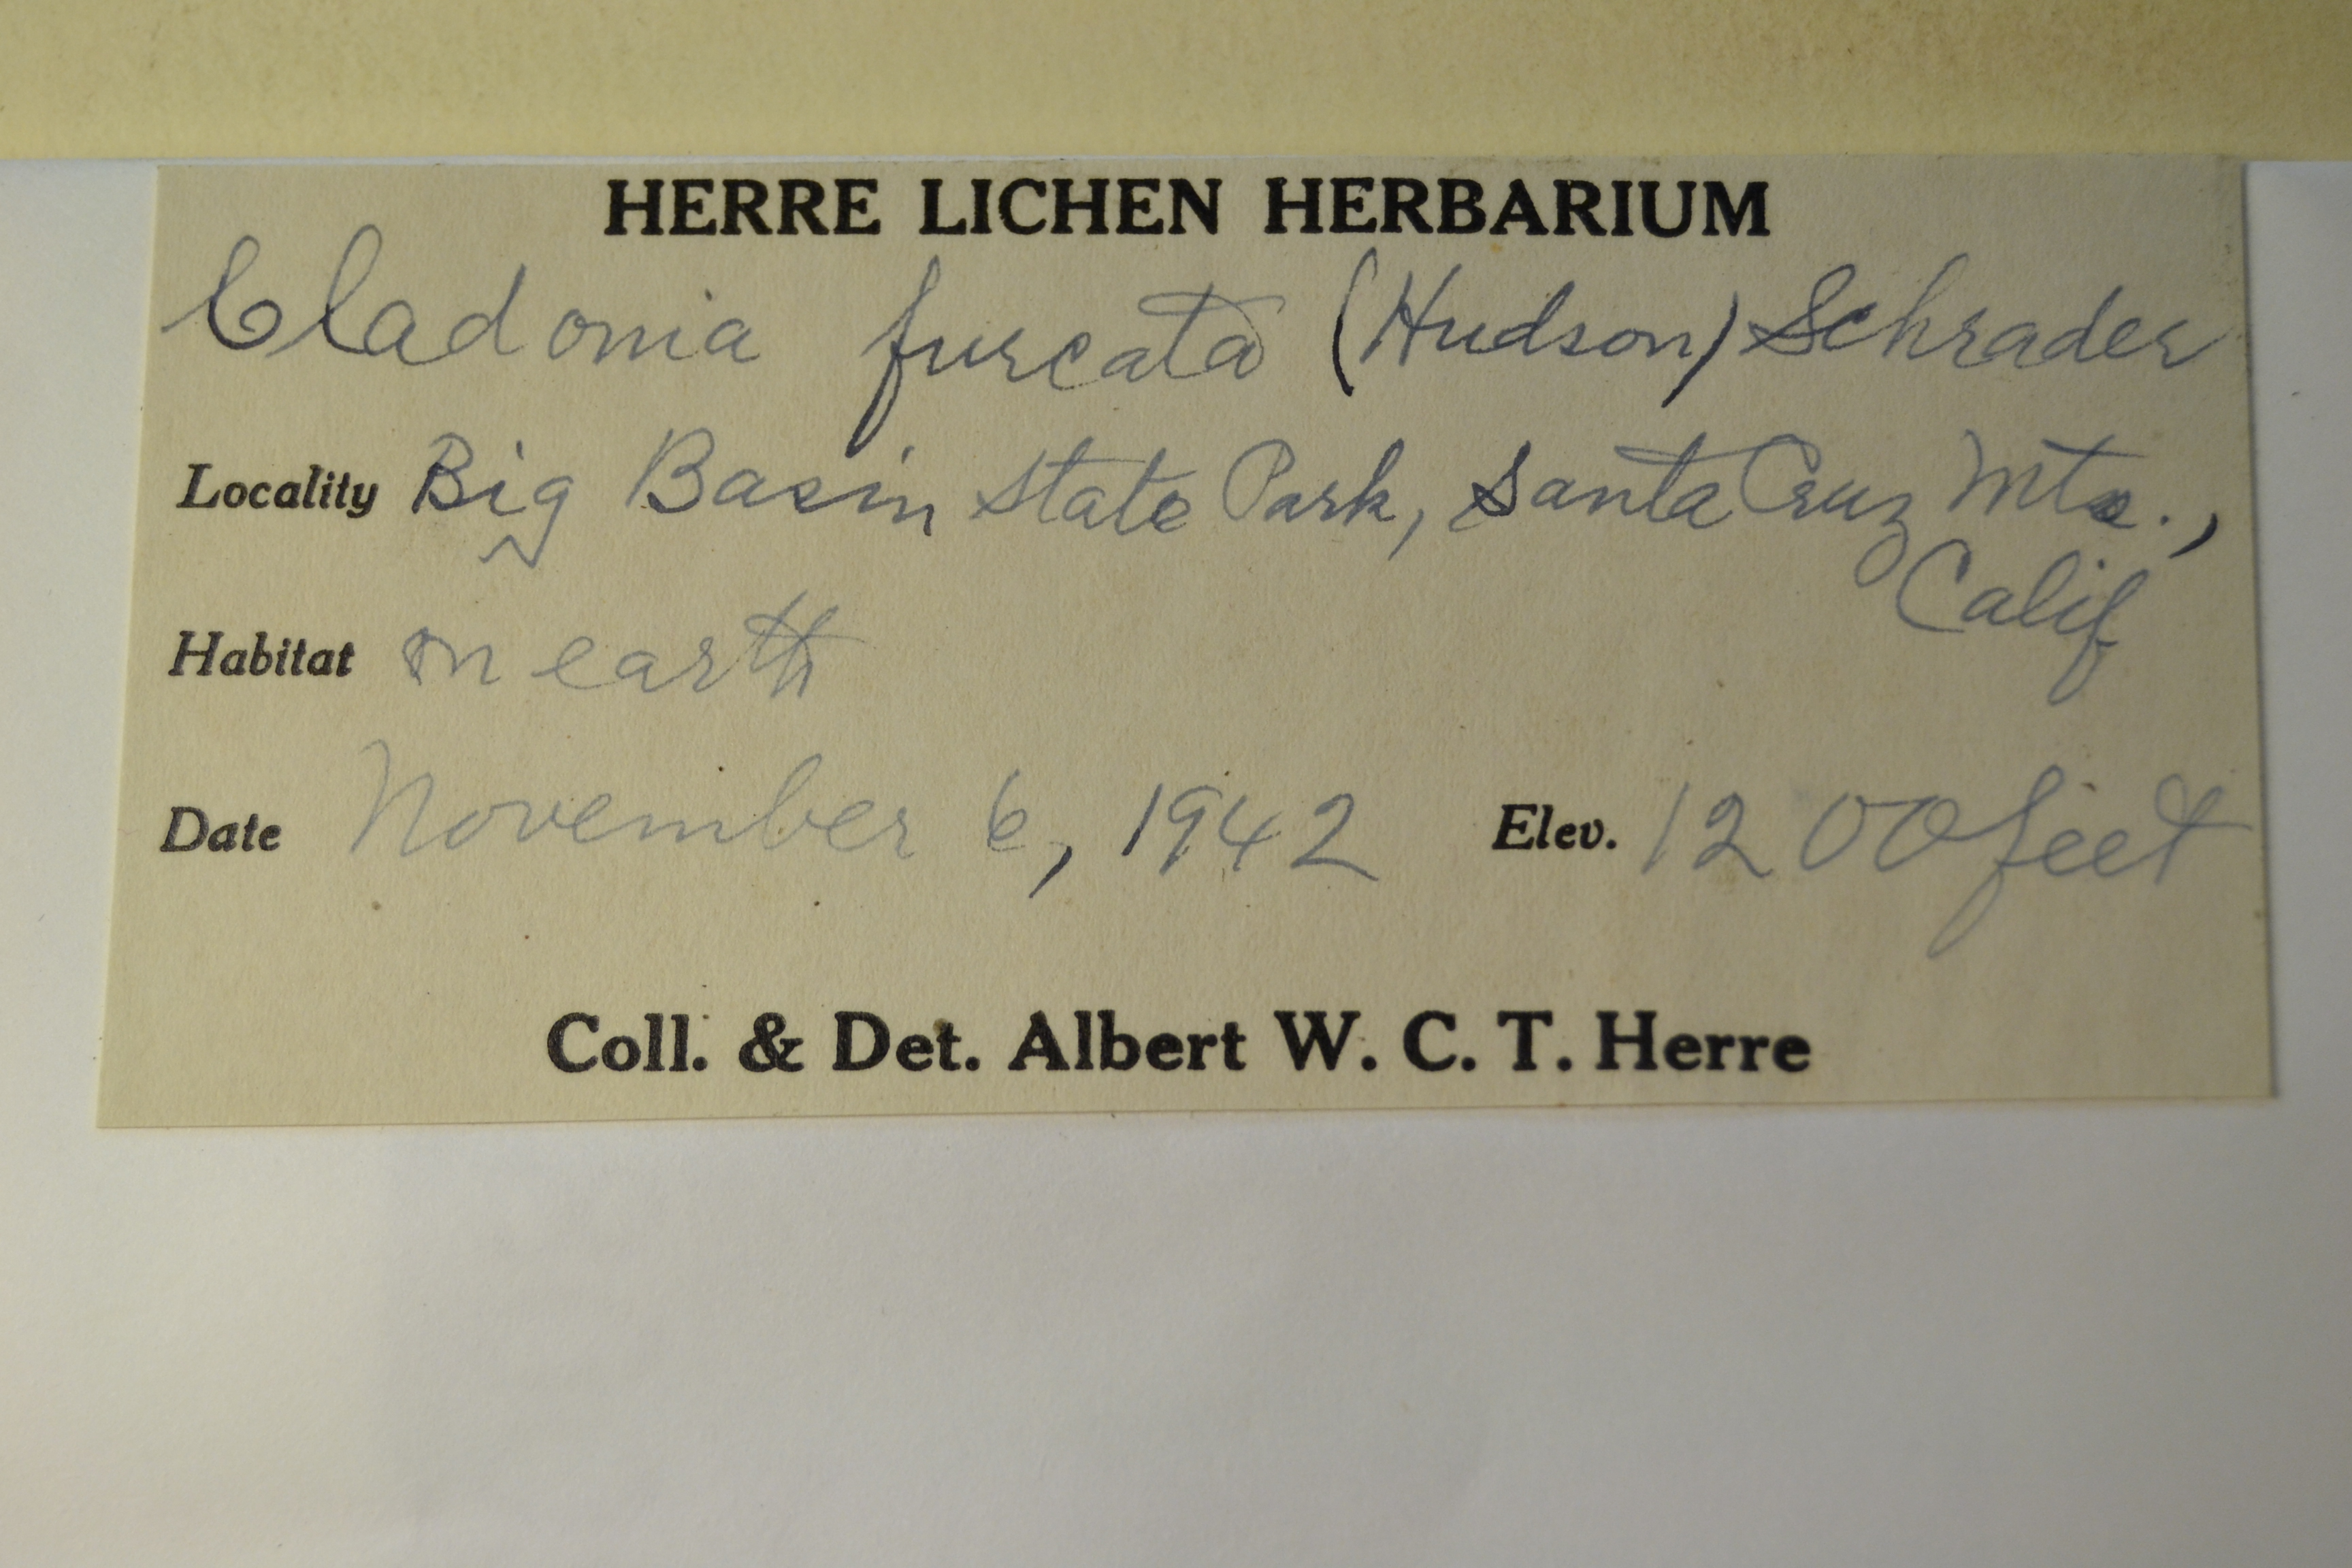 HERRE LICHEN HERBARIUM
Cladonia furcata (Hudson) Schrader
Locality Big Basin State Park, Santa Cruz Mts.,
Calif
Habitat on earth
Date November 6, 1942 Elev. 1200 feet
Coll. & Det. Albert W. C. T. Herre